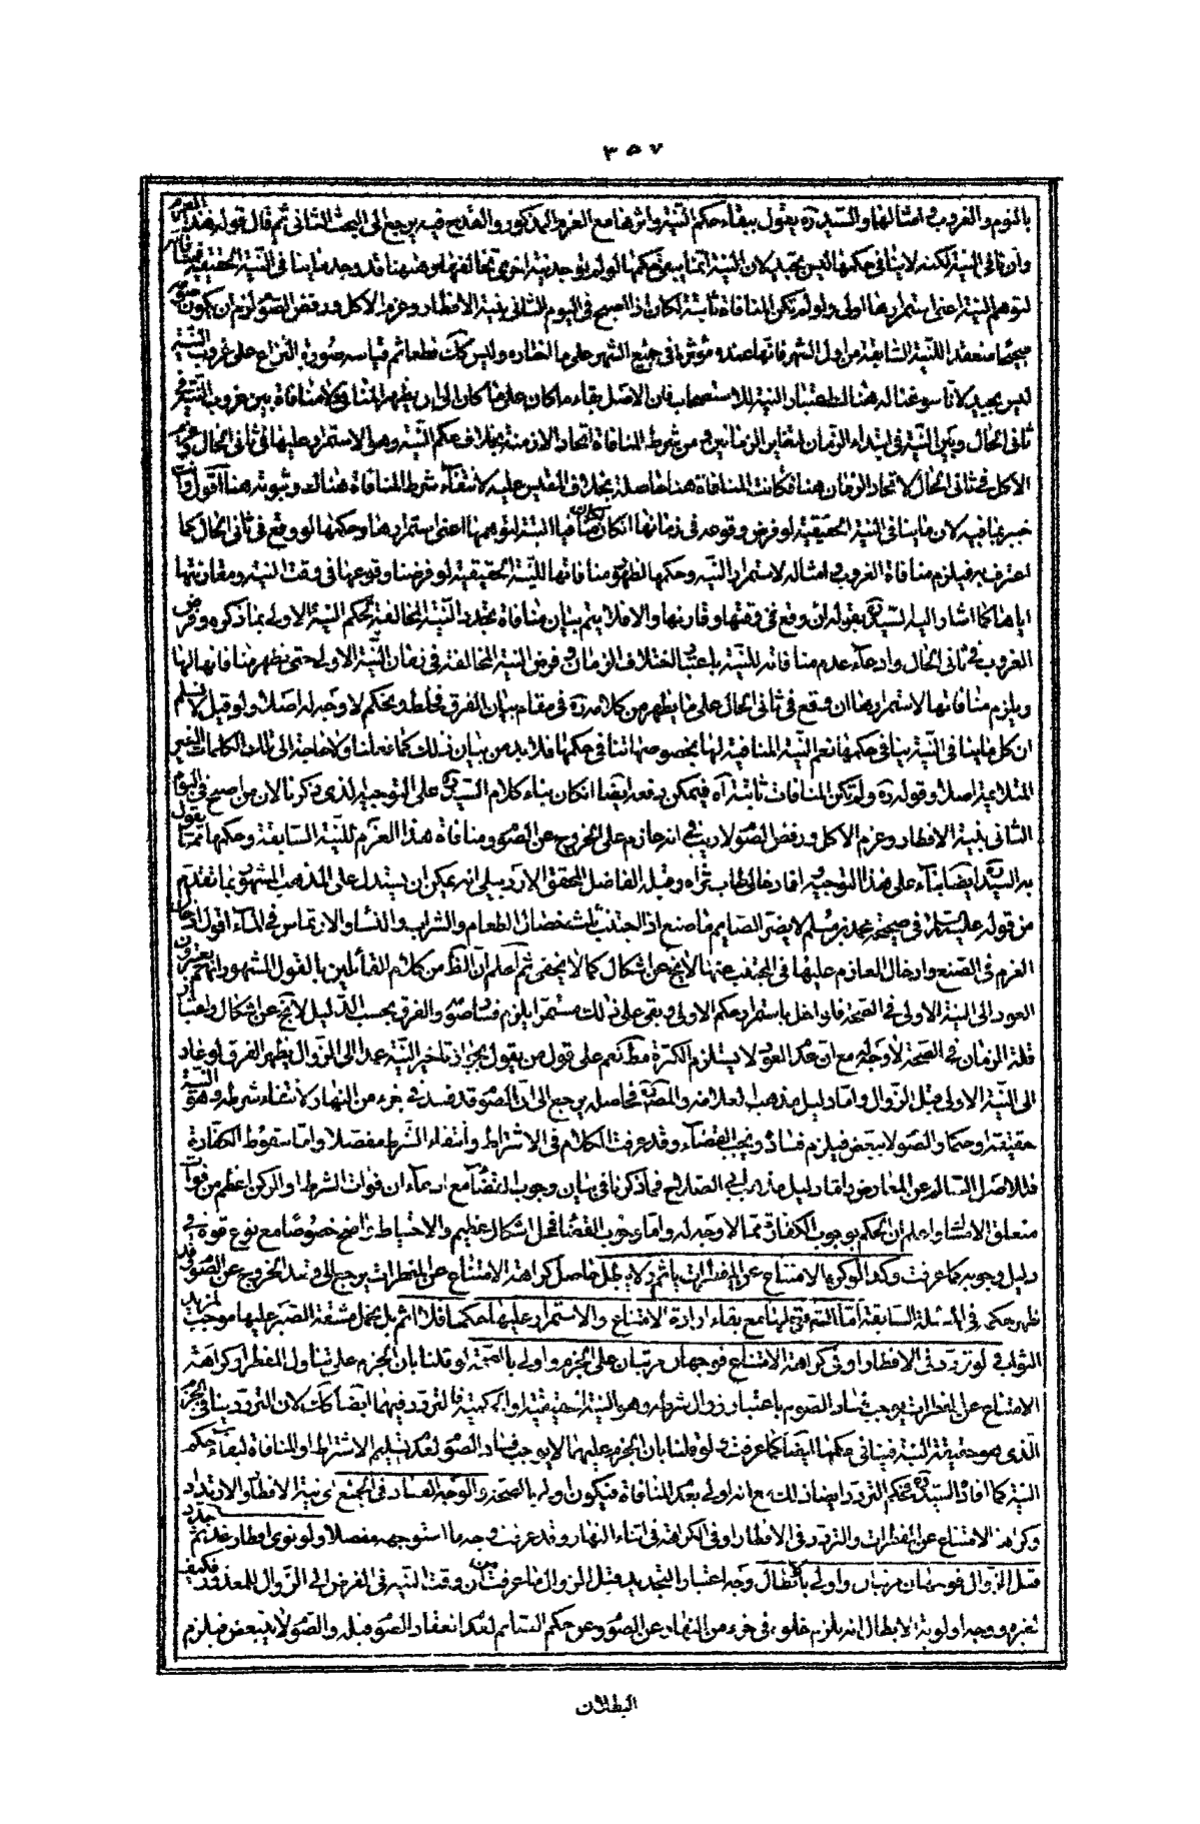 ٣٥٧
بالنوم والغروب وامثالهما والسيد ره يقول ببقاء حكم النية واثرها مع العزم المذكور والقدح فيه يرجع الى البحث الثانى ثم قال قوله هذا العزم
وان نافى النية لكنه لا ينافى حكمها ليس بجيد لان النية انما يبقى حكمها لو لم يوجد نية اخرى تخالفها وههنا قد وجد ما ينافى النية الحقيقية فينافى
لتوهم النية اعنى استمرارها اولى ولو لم تكن المنافاة ثابتة لكان اذا اصبح فى اليوم الثانى بنية الافطار وعزم الاكل ورفض الصوم لزم ان يكون صومه
صحيحا منعقدا للنية السابقة من اول الشهر فانها عنده مؤثرة فى جميع الشهر على ما اختاره وليس كذلك قطعا ثم قياسه صورة النزاع على عزوب النية
ليس بجيد لانا سوغنا له هناك اعتبار النية للاستصحاب فان الاصل بقاء ما كان على ما كان الى ان يظهر المنافى ولا منافاة بين عزوب النية فى
ثانى الحال وبين النية فى ابتداء الزمان لتغاير الزمانين ومن شرط المنافاة اتحاد الازمنة بخلاف حكم النية وهو الاستمرار عليها فى ثانى الحال
الاكل فى ثانى الحال لاتحاد الزمان هنا فكانت المنافاة هنا حاصلة بخلاف المقيس عليه لانتفاء شرط المنافاة هناك وثبوته هنا اقول وانت
خبير بما فيه لان ما ينافى النية الحقيقية لو فرض وقوعه فى زمانها ان كان منافيا للنية لتوهمها اعنى استمرارها وحكمها لو وقع فى ثانى الحال كما
اعترف به فيلزم منافاة الغروب وامثاله لاستمرار النية وحكمها لظهور منافاتها للنية الحقيقية لو فرضنا وقوعها فى وقت النية ومقارنتها
اياها كما اشار اليه السيد ره بقوله لو وقع فى وقتها وقارنها والا فلا يتم بيان منافاة تجدد النية المخالفة لحكم النية الاولى بما ذكره وفرض
الغروب فى ثانى الحال وادعاء عدم منافاته للنية باعتبار اختلاف الزمان وفرض النية المخالفة فى زمان النية الاولى حتى يظهر منافاتها لها
ويلزم منافاتها لاستمرارها ان وقع فى ثانى الحال على ما يظهر من كلامه ره فى مقام بيان الفرق خلط وتحكم لا وجه له اصلا ولو قيل لا نسلم
ان كل ما ينافى النية ينافى حكمها نعم النية المنافية لها بخصوصها تنافى حكمها فلا بد من بيان ذلك كما فعلنا ولا حاجة الى تلك الكلمات الغير
المتلائمة اصلا وقوله ره ولو لم تكن المنافاة ثابتة آه فيمكن دفعه ايضا ان كان بناء كلام السيد ره على التوجيه الذى ذكرنا لان من اصبح فى اليوم
الثانى بنية الافطار وعزم الاكل ورفض الصوم لا ريب فى انه عازم على الخروج عن الصوم ومنافاة هذا العزم للنية السابقة وحكمها مما يقول
به السيد ره ايضا بناء على هذا التوجيه افاد خالى طاب ثراه وقبله الفاضل المحقق الاردبيلى انه يمكن ان يستدل على المذهب المشهور بما تقدم
من قوله عليه السلام فى صحيحة محمد بن مسلم لا يضر الصايم ما صنع اذا اجتنب ثلث خصال الطعام والشراب والنساء والارتماس فى الماء اقول ادخال
العزم فى الصنع وادخال العازم عليها فى المجتنب عنها لا يخ عن اشكال كما لا يخفى ثم اعلم ان الظ من كلام القائلين بالقول المشهور انهم يعتبرون
العود الى النية الاولى فى الصحة فلو اخل باستمرار حكم الاولى وبقى على ذلك مستمرا يلزم فساد صومه والفرق بحسب الدليل لا يخ عن اشكال واعتبار
قلة الزمان فى الصحة لا وجه له مع ان عدم العود لا يستلزم الكثرة مط نعم على قول من يقول بجواز تاخير النية عمدا الى الزوال يظهر الفرق لو عاد
الى النية الاولى قبل الزوال واما دليل مذهب العلامة والمصنف فحاصله يرجع الى ان الصوم قد فسد فى جزء من النهار لانتفاء شرطه وهو النية
حقيقة او حكما والصوم لا يتبعض فيلزم فساده ويجب القضاء وقد عرفت الكلام فى الاشتراط وانتفاء الشرط مفصلا واما سقوط الكفارة
فللاصل السالم عن المعارض واما دليل مذهب ابى الصلاح فما ذكرنا فى بيان وجوب القضاء مع ادعاء ان فوات الشرط او الركن اعظم من فوات
متعلق الامساك واعلم ان الحكم بوجوب الكفارة مما لا وجه له واما وجوب القضاء فمحل اشكال عظيم والاحتياط واضح خصوصا مع نوع قوة فى
دليل وجوبه كما عرفت وكذا لو كره الامتناع عن المفطرات ياثم ولا يبطل حاصل كراهة الامتناع عن المفطرات يرجع الى قصد الخروج عن الصوم وقد
ظهر حكمه فى المسئلة السابقة اما الشهوة لها مع بقاء ارادة الامتناع والاستمرار عليها حكما فلا اثم بل تحمل مشقة الصبر عليها موجب لمزيد
الثواب ولو تردد فى الافطار او فى كراهة الامتناع فوجهان مرتبان على الجزم واولى بالصحة لو قلنا بان الجزم على تناول المفطر او كراهة
الامتناع عن المفطرات يوجب فساد الصوم باعتبار زوال شرطه وهو النية الحقيقية او الحكمية فالتردد فيهما ايضا كذلك لان التردد ينافى الجزم
الذى هو حقيقة النية فينافى حكمها ايضا كما عرفت ولو قلنا بان الجزم عليهما لا يوجب فساد الصوم لعدم تسليم الاشتراط او المنافاة لبقاء حكم
النية كما افاده السيد ره فحكم التردد ايضا ذلك مع انه اولى بعدم المنافاة فيكون اولى بالصحة والوجه الفساد فى الجميع اى نية الافطار والارتداد
وكراهة الامتناع عن المفطرات والتردد فى الافطار او فى الكراهة فى اثناء النهار وقد عرفت وجه ما استوجهه مفصلا ولو نوى افطار غد ثم جدد
قبل الزوال فوجهان مرتبان واولى بالابطال وجه اعتبار التجديد قبل الزوال ما عرفت من ان وقت النية فى الفرض الى الزوال للمعذور فكيف
لغيره ووجه اولوية الابطال انه يلزم خلوه فى جزء من النهار عن الصوم وعن حكم الصائم لعدم انعقاد الصوم قبله والصوم لا يتبعض فيلزم
البطلان